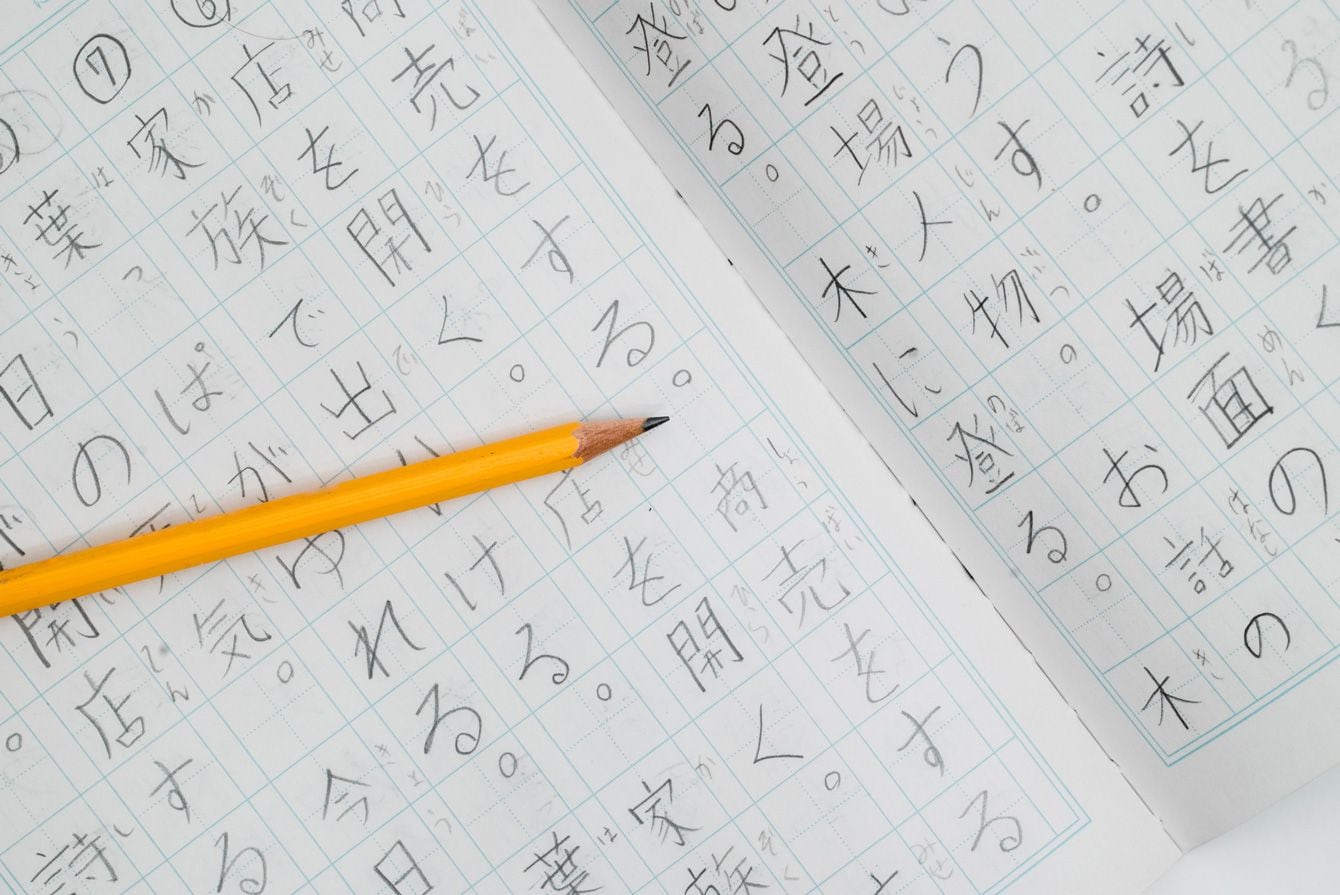 る
詩を書く
うす。場面の
登場人物。お話の
登る。木に登る。木
商売をする。商売をする
⑥店を開く。店を開く。
⑦家族で出かける。家族
葉っぱがゆれる。葉
日の天気。今日
が開店する
。詩